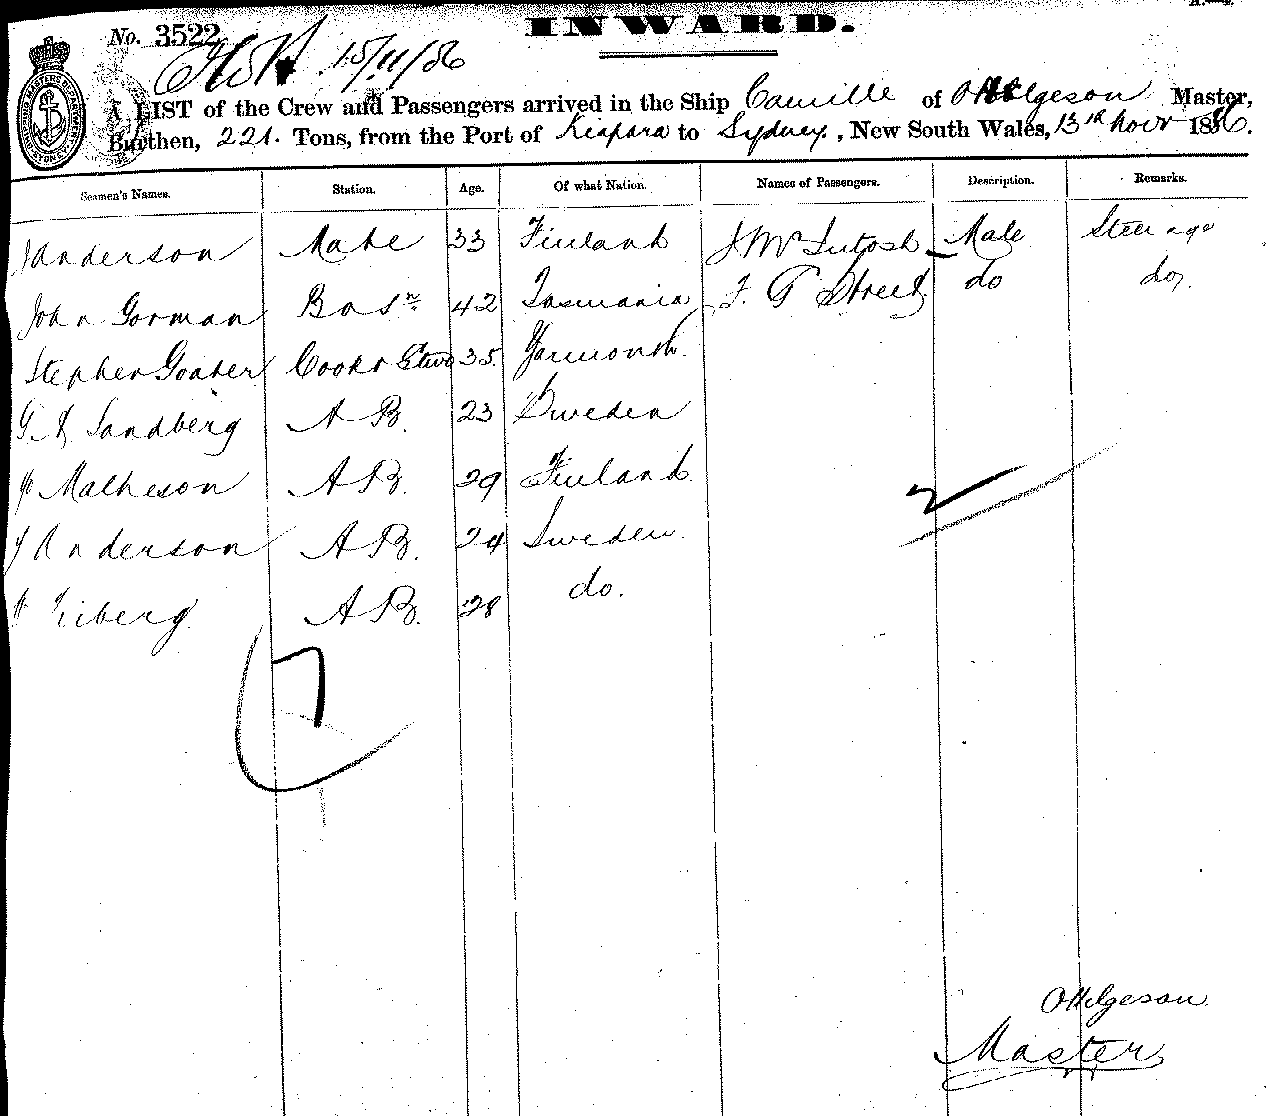 INWARD.
No. 3522
15/11/86
A LIST of the Crew and Passengers arrived in the Ship Camille of O Helgeson Master,
Burthen, 221. Tons, from the Port of Kiapara to Sydney, New South Wales, 13th Novr 1886.
Seamen's Names. Station. Age. Of what Nation. Names of Passengers. Description. Remarks.
J Anderson Mate 33 Finland J McIntosh Male Steerage
John Gorman Bosn 42 Tasmania F. G Street do do.
Stephen Goater Cook & Stwd 35. Yarmouth.
G. A Sandberg A B. 23 Sweden
Matheson A B. 29 Finland
J Anderson A B. 24 Sweden.
A B. 28 do.
7
2
O Helgeson
Master